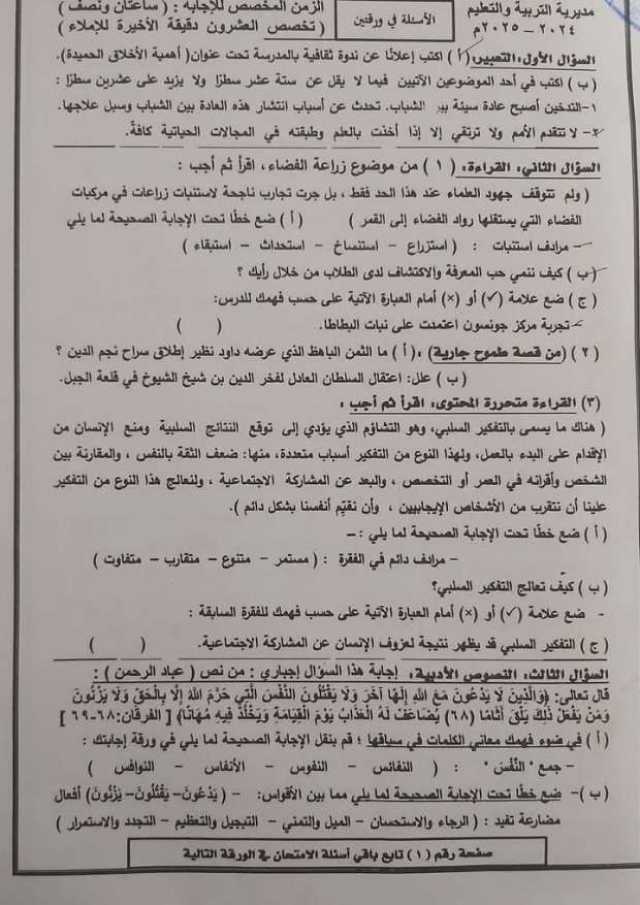 مديرية التربية والتعليم
٢٠٢٤ – ٢٠٢٥م
الأسئلة في ورقتين
الزمن المخصص للإجابة : ( ساعتان ونصف )
( تخصص العشرون دقيقة الأخيرة للإملاء )
السؤال الأول: التعبير، ( أ ) اكتب إعلانًا عن ندوة ثقافية بالمدرسة تحت عنوان( أهمية الأخلاق الحميدة).
( ب ) اكتب في أحد الموضوعين الآتيين فيما لا يقل عن ستة عشر سطرًا ولا يزيد على عشرين سطرًا :
١-التدخين أصبح عادة سيئة بين الشباب. تحدث عن أسباب انتشار هذه العادة بين الشباب وسبل علاجها.
٢- لا تتقدم الأمم ولا ترتقي إلا إذا أخذت بالعلم وطبقته في المجالات الحياتية كافةً.
السؤال الثاني: القراءة، ( ١ ) من موضوع زراعة الفضاء ، اقرأ ثم أجب :
( ولم تتوقف جهود العلماء عند هذا الحد فقط ، بل جرت تجارب ناجحة لاستنبات زراعات في مركبات
الفضاء التي يستقلها رواد الفضاء إلى القمر ) ( أ ) ضع خطًا تحت الإجابة الصحيحة لما يلي
– مرادف استنبات : ( استزراع – استنساخ – استحداث – استبقاء )
(ب) كيف ننمي حب المعرفة والاكتشاف لدى الطلاب من خلال رأيك ؟
( ج ) ضع علامة (✓) أو (×) أمام العبارة الآتية على حسب فهمك للدرس:
– تجربة مركز جونسون اعتمدت على نبات البطاطا. ( )
( ٢ ) (من قصة طموح جارية) ، ( أ ) ما الثمن الباهظ الذي عرضه داود نظير إطلاق سراح نجم الدين ؟
( ب ) علل: اعتقال السلطان العادل لفخر الدين بن شيخ الشيوخ في قلعة الجبل.
(٣) القراءة متحررة المحتوى، اقرأ ثم أجب :
( هناك ما يسمى بالتفكير السلبي، وهو التشاؤم الذي يؤدي إلى توقع النتائج السلبية ومنع الإنسان من
الإقدام على البدء بالعمل، ولهذا النوع من التفكير أسباب متعددة، منها: ضعف الثقة بالنفس ، والمقارنة بين
الشخص وأقرانه في العمر أو التخصص ، والبعد عن المشاركة الاجتماعية ، ولنعالج هذا النوع من التفكير
علينا أن نتقرب من الأشخاص الإيجابيين ، وأن نقيّم أنفسنا بشكل دائم ).
( أ ) ضع خطًا تحت الإجابة الصحيحة لما يلي : –
– مرادف دائم في الفقرة : ( مستمر – متنوع – متقارب – متفاوت )
( ب ) كيف تعالج التفكير السلبي؟
- ضع علامة (✓) أو (×) أمام العبارة الآتية على حسب فهمك للفقرة السابقة :
( ج ) التفكير السلبي قد يظهر نتيجة لعزوف الإنسان عن المشاركة الاجتماعية. ( )
السؤال الثالث: النصوص الأدبية، إجابة هذا السؤال إجباري : من نص ( عباد الرحمن ) :
قال تعالى: ﴿وَالَّذِينَ لَا يَدْعُونَ مَعَ اللَّهِ إِلَهًا آخَرَ وَلَا يَقْتُلُونَ النَّفْسَ الَّتِي حَرَّمَ اللَّهُ إِلَّا بِالْحَقِّ وَلَا يَزْنُونَ
وَمَنْ يَفْعَلْ ذَلِكَ يَلْقَ أَثَامًا (٦٨) يُضَاعَفْ لَهُ الْعَذَابُ يَوْمَ الْقِيَامَةِ وَيَخْلُدْ فِيهِ مُهَانًا﴾ [ الفرقان:٦٨-٦٩ ]
( أ ) في ضوء فهمك معاني الكلمات في سياقها ؛ قم بنقل الإجابة الصحيحة لما يلي في ورقة إجابتك :
– جمع "النَّفْسَ" : ( النفائس – النفوس – الأنفاس – النوافس )
( ب )- ضع خطًا تحت الإجابة الصحيحة لما يلي مما بين الأقواس: – ( يَدْعُونَ– يَقْتُلُونَ– يَزْنُونَ) أفعال
مضارعة تفيد : ( الرجاء والاستحسان – الميل والتمني – التبجيل والتعظيم – التجدد والاستمرار )
صفحة رقم ( ١ ) تابع باقي أسئلة الامتحان في الورقة التالية